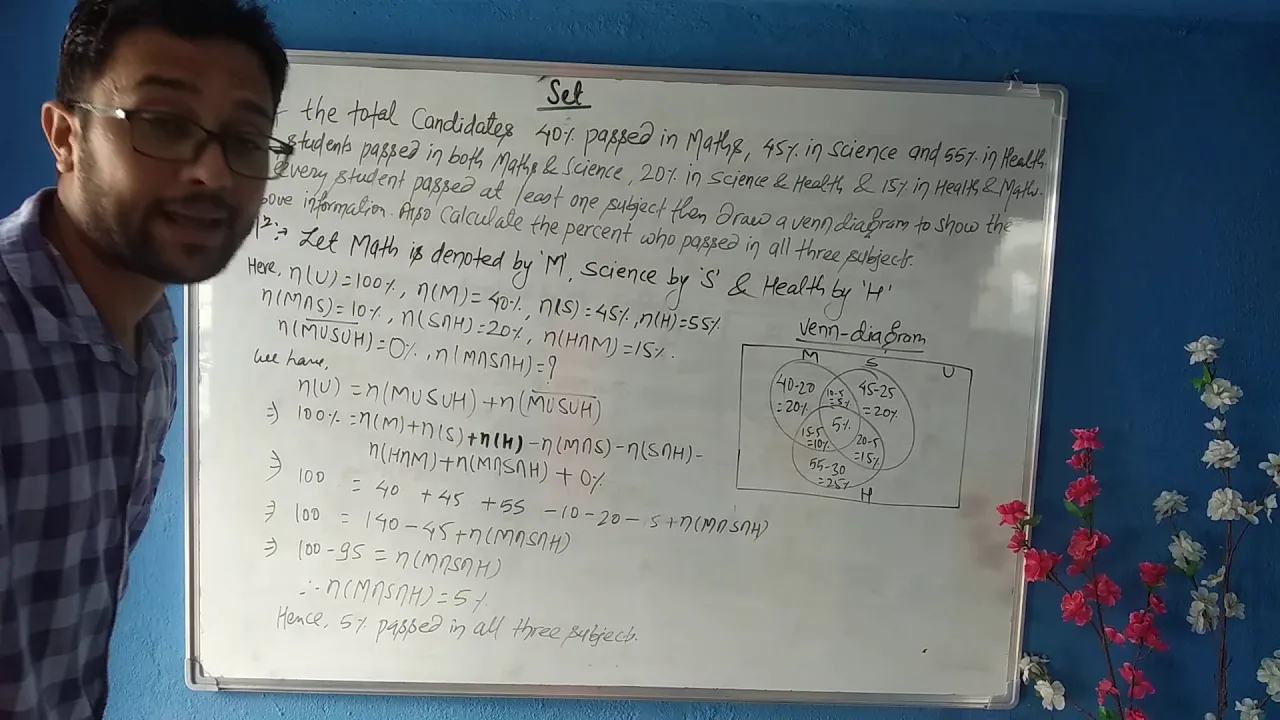 Set
the total Candidates 40% passed in Maths, 45% in science and 55% in Health.
students passed in both Maths & Science, 20% in Science & Health & 15% in Health & Maths.
every student passed at least one subject then draw a venn diagram to show the
information. Also Calculate the percent who passed in all three subject.
Let Math is denoted by 'M', Science by 'S' & Health by 'H'
Here, n(U)=100%, n(M)=40%, n(S)=45%, n(H)=55%
n(M∩S)=10%, n(S∩H)=20%, n(H∩M)=15%.
n(M̅U̅S̅U̅H̅)=0%, n(M∩S∩H)=?
we have,
n(U) = n(MUSUH)+n(M̅U̅S̅U̅H̅)
⇒ 100% = n(M)+n(S)+n(H)-n(M∩S)-n(S∩H)-
n(H∩M)+n(M∩S∩H)+0%
⇒ 100 = 40 +45 +55 -10-20- 5+n(M∩S∩H)
⇒ 100 = 140-45+n(M∩S∩H)
⇒ 100-95 = n(M∩S∩H)
∴ n(M∩S∩H)=5%
Hence, 5% passed in all three subject.
venn-diagram
M S U
40-20
=20%
10-5
=5%
45-25
=20%
5%
15-5
=10%
20-5
=15%
55-30
=25%
H